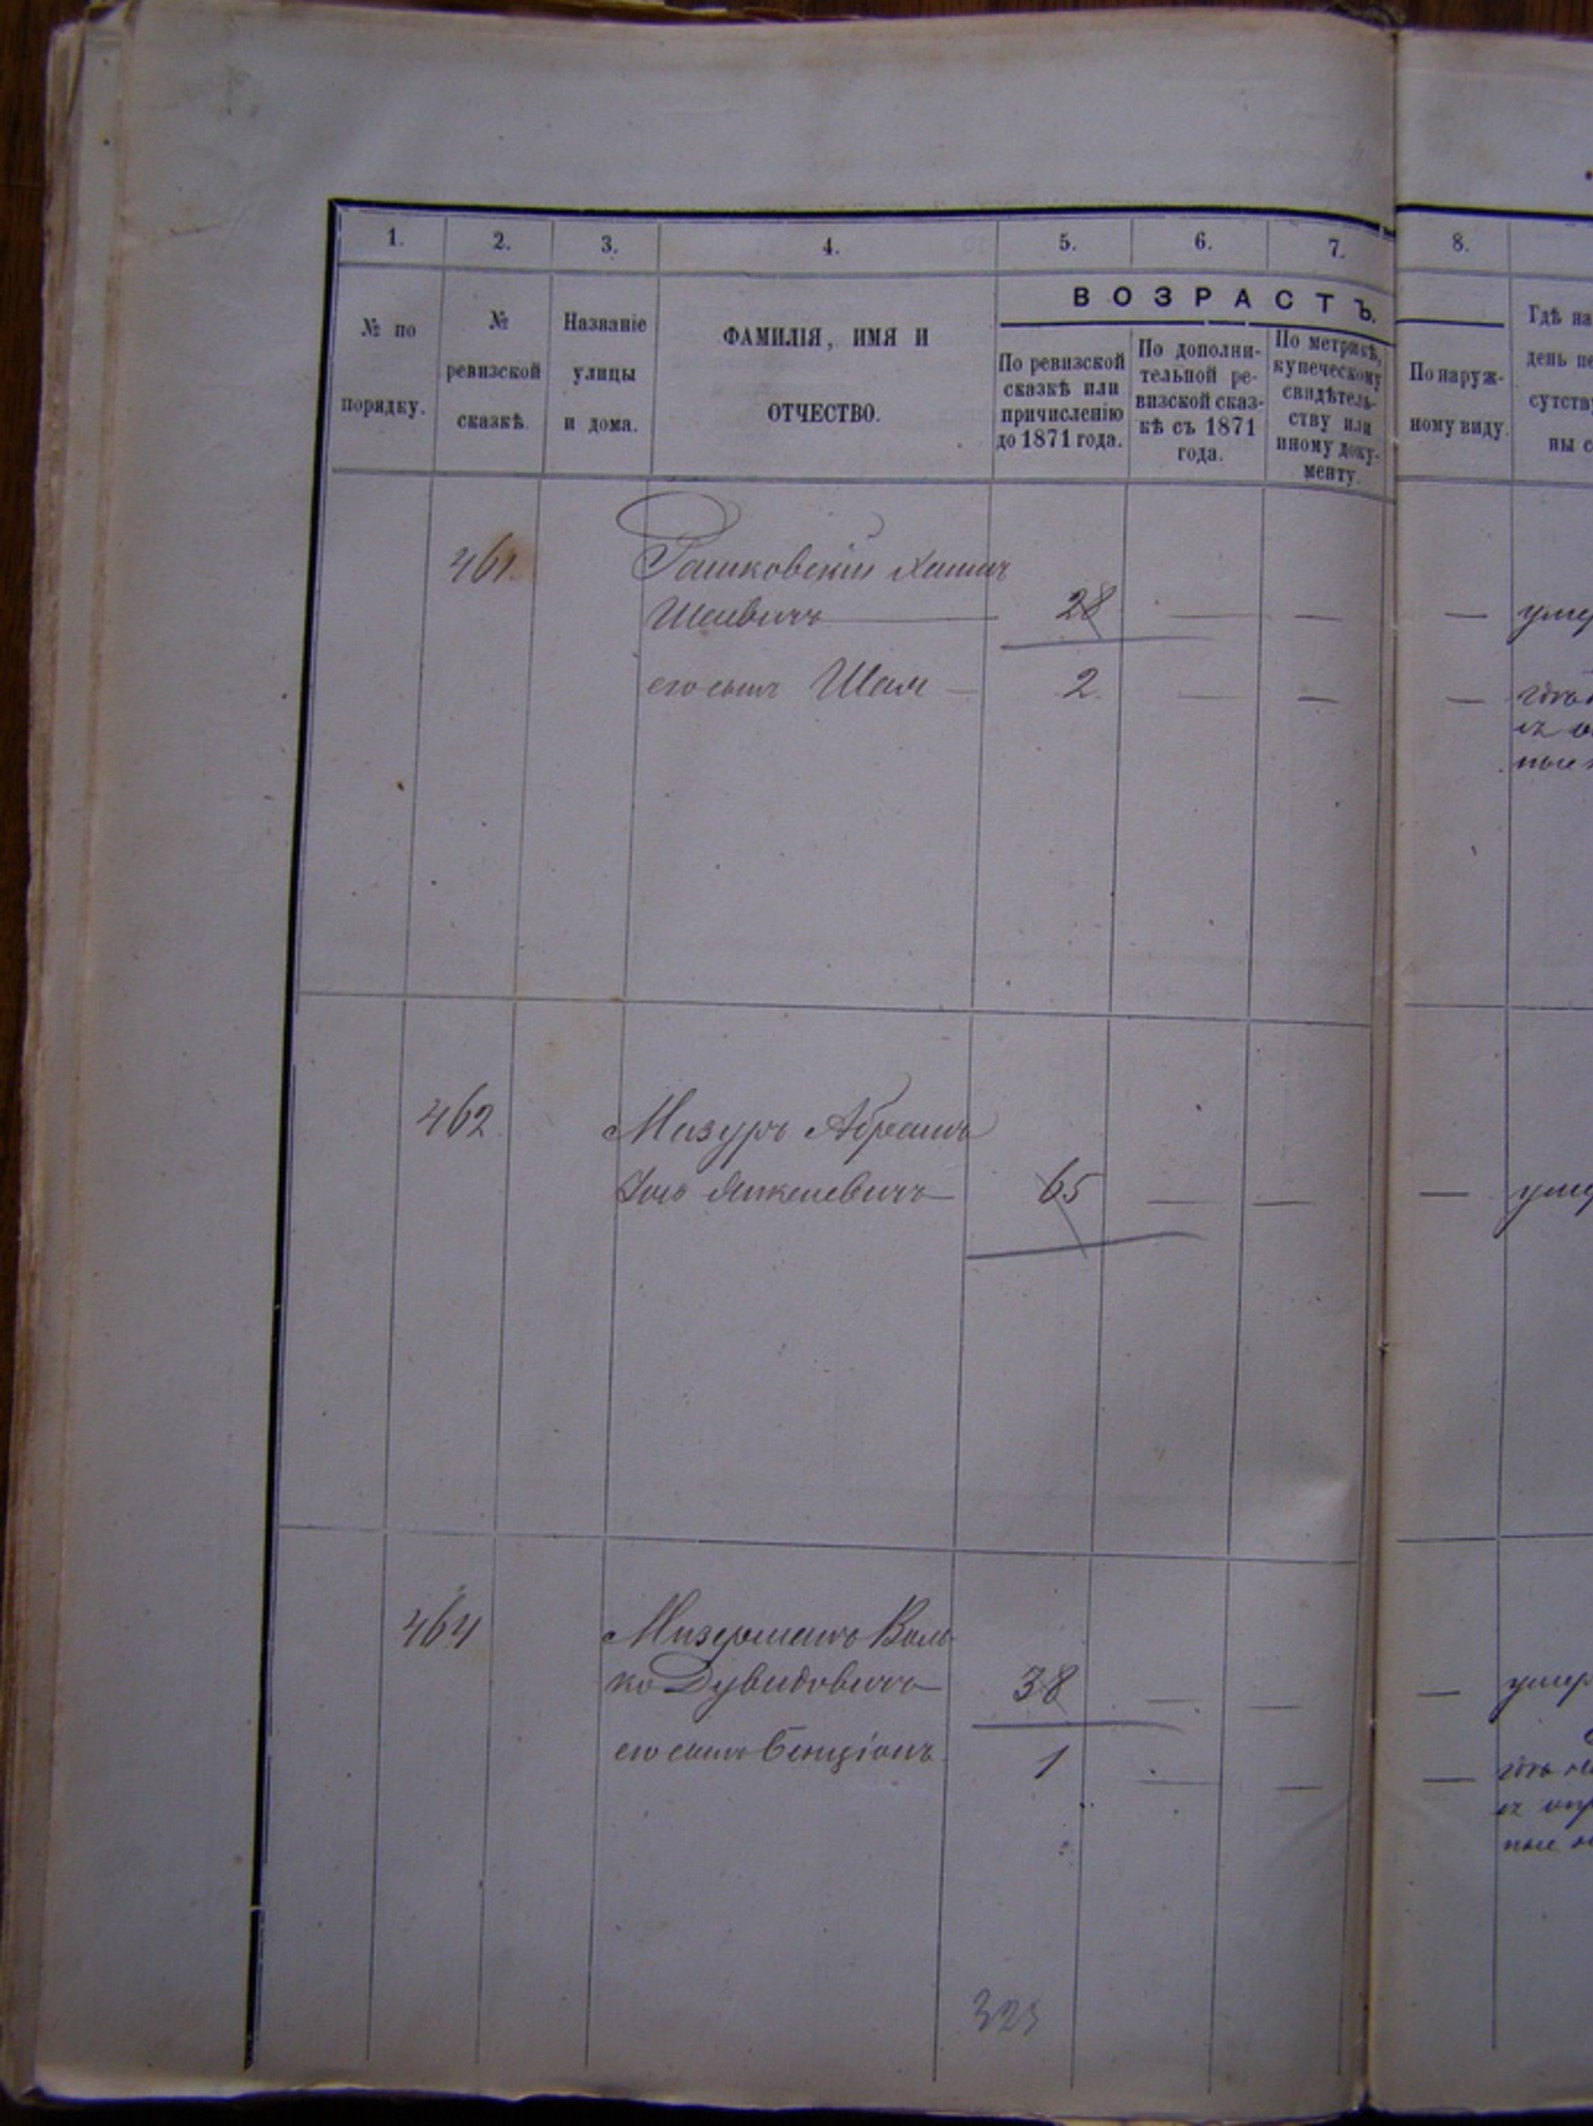 1. 2. 3. 4. 5. 6. 7. 8.
№ по порядку.
№ ревизской сказкѣ.
Названіе улицы и дома.
ФАМИЛІЯ, ИМЯ И
ОТЧЕСТВО.
ВОЗРАСТЪ.
По ревизской
сказкѣ или
причисленію
до 1871 года.
По дополни-
тельной ре-
визской сказ-
кѣ съ 1871
года.
По метрикѣ,
купеческому
свидѣтель-
ству или
иному доку-
менту.
По наруж-
ному виду.
Гдѣ на
день пе
сутств
ны с
461. Рашковскій Хаимъ
Шаевичъ — 28 — — — умер
его сынъ Шая — 2. — — —
462 Мазуръ Абрамъ
Янкелевичъ — 65 — — — умер
464 Мизерманъ Воль-
ко Дувидовичъ — 38 — — — умер
его сынъ Бенціонъ. 1 — — —
323